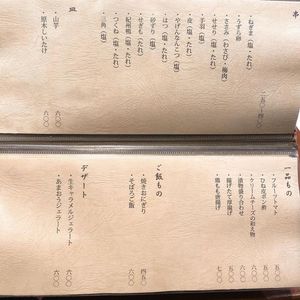 串
・ねぎま（塩・たれ）
・うずら卵
・ささみ（わさび・梅肉）
・せせり（塩・たれ）
・手羽（塩）
・皮（塩・たれ）
・やげんなんこつ（塩）
・はつ（塩・たれ）
・砂ずり（塩）
・せぎも（塩・たれ）
・紀州鴨（塩）
・つくね（塩・たれ）
・三角（塩）
二五〇〜四五〇
皿
・山芋 六〇〇
・原木しいたけ 六〇〇
一品もの
・フルーツトマト 五〇〇
・ひね皮ポン酢 五〇〇
・クリームチーズの和え物
・漬物盛り合わせ 六〇〇
・揚げたて厚揚げ 六〇〇
・鶏もも唐揚げ 七〇〇
ご飯もの
・焼きおにぎり 四五〇
・そぼろご飯 六〇〇
デザート
・生キャラメルジェラート 六〇〇
・あまおうジェラート 六〇〇